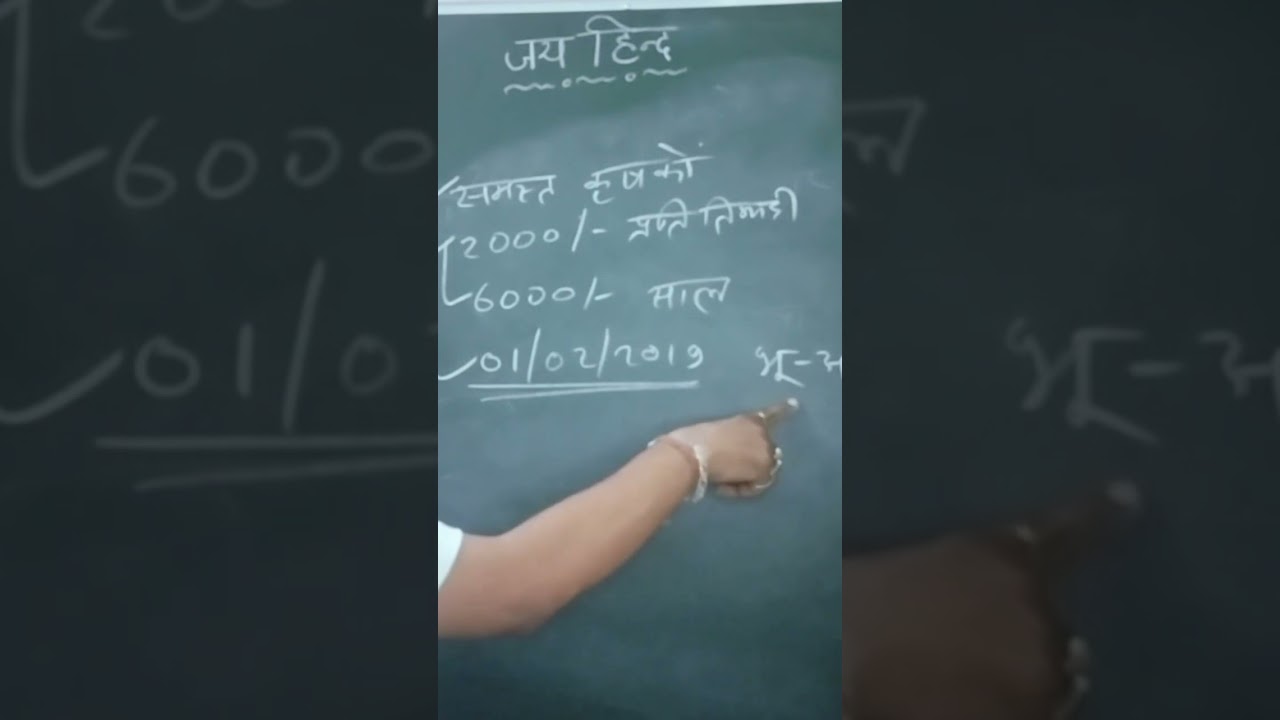 जय हिन्द
समस्त कृषकों
2000/- प्रति तिमाही
6000/- साल
01/02/2019 भू-अ